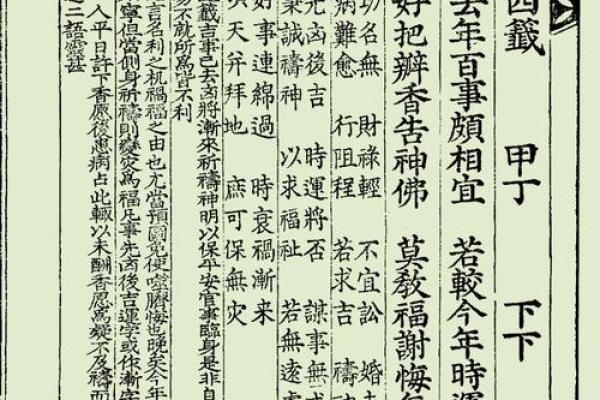 四籤 甲丁 下下
去年百事頗相宜 若較今年時運
好把瓣香告神佛 莫教福謝悔
功名無 財祿輕 不宜訟 婚
病難愈 行阻程 若求吉 禱
先凶後吉 時運將否 謀事無
秉誠禱神 以求福祉 若無遠慮
好事連綿過 時衰禍漸來
天并拜地 庶可保無灾
籤吉事已去凶將漸來祈禱神明以保平安官事臨身是非自
不就所爲皆不利
言名利之机禍福之由也尤當預圖免使噬臍悔也晚矣今年
寧但當側身祈禱則變灾爲福凡事先凶後吉運字或作漸字
人平日許下香愿後患病占此輒以未酬香愿爲疑不及禱而
之二語靈甚